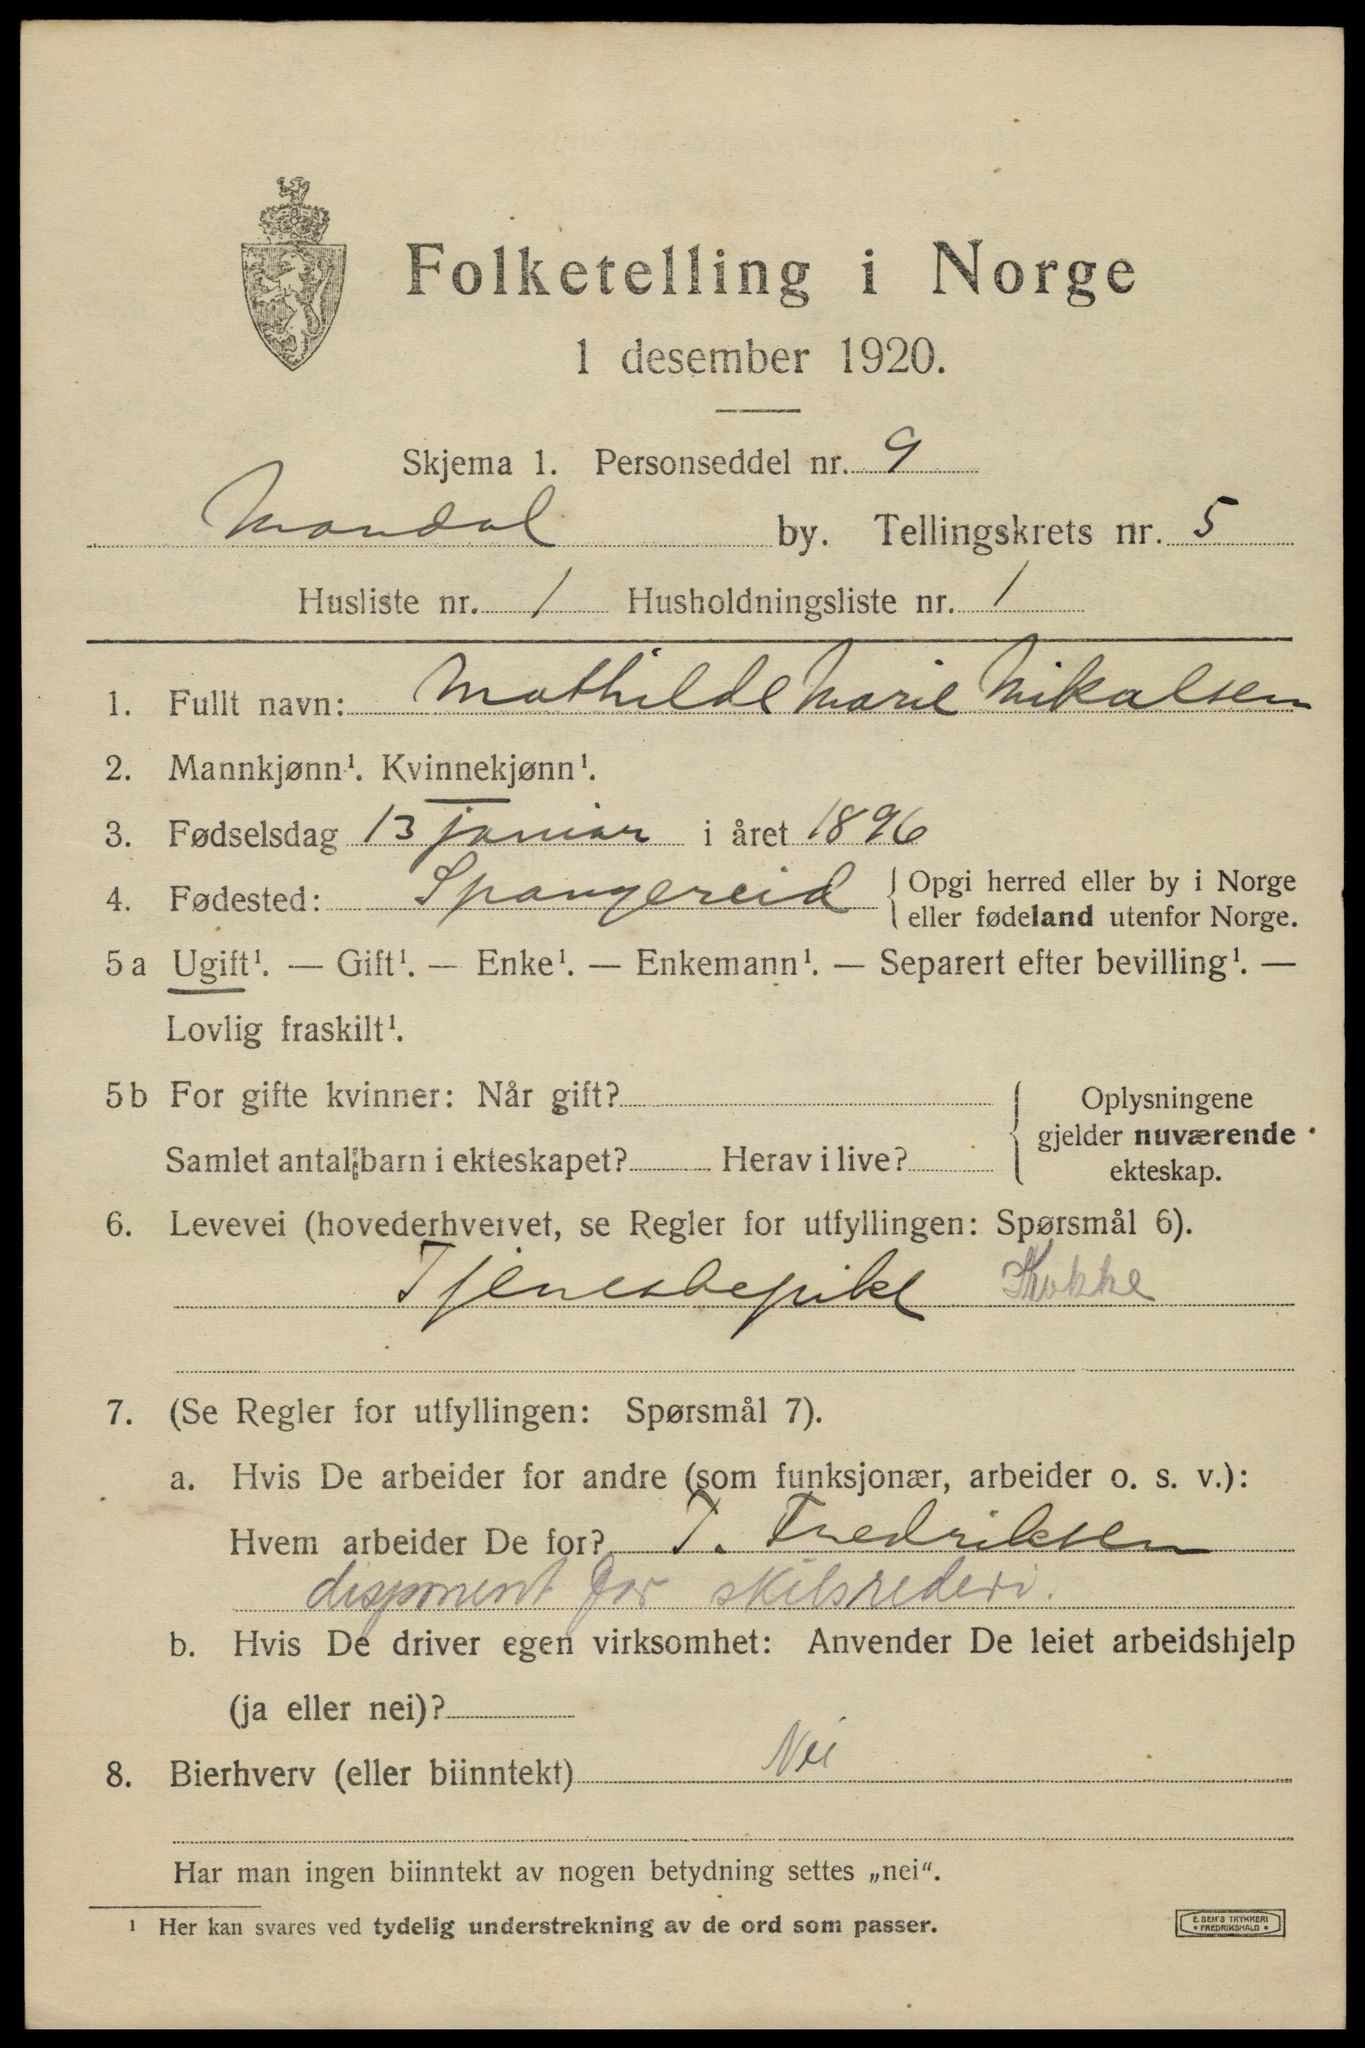 Folketelling i Norge
1 desember 1920.
Skjema 1. Personseddel nr. 9
Mandal by. Tellingskrets nr. 5
Husliste nr. 1 Husholdningsliste nr. 1
1. Fullt navn: Mathilde Marie Mikalsen
2. Mannkjønn¹. Kvinnekjønn¹.
3. Fødselsdag 13 januar i året 1896
4. Fødested: Spangereid { Opgi herred eller by i Norge
eller fødeland utenfor Norge.
5 a Ugift¹. — Gift¹. — Enke¹. — Enkemann¹. — Separert efter bevilling¹. —
Lovlig fraskilt¹.
5 b For gifte kvinner: Når gift?
Samlet antal barn i ekteskapet? Herav i live?
Oplysningene
gjelder nuværende
ekteskap.
6. Levevei (hovederhvervet, se Regler for utfyllingen: Spørsmål 6).
Tjenestepike Kokke
7. (Se Regler for utfyllingen: Spørsmål 7).
a. Hvis De arbeider for andre (som funksjonær, arbeider o. s. v.):
Hvem arbeider De for? T. Fredriksen
disponent for skibsrederi.
b. Hvis De driver egen virksomhet: Anvender De leiet arbeidshjelp
(ja eller nei)?
8. Bierhverv (eller biinntekt) Nei
Har man ingen biinntekt av nogen betydning settes „nei“.
¹ Her kan svares ved tydelig understrekning av de ord som passer.
E. SEM'S TRYKKERI
• FREDRIKSHALD •